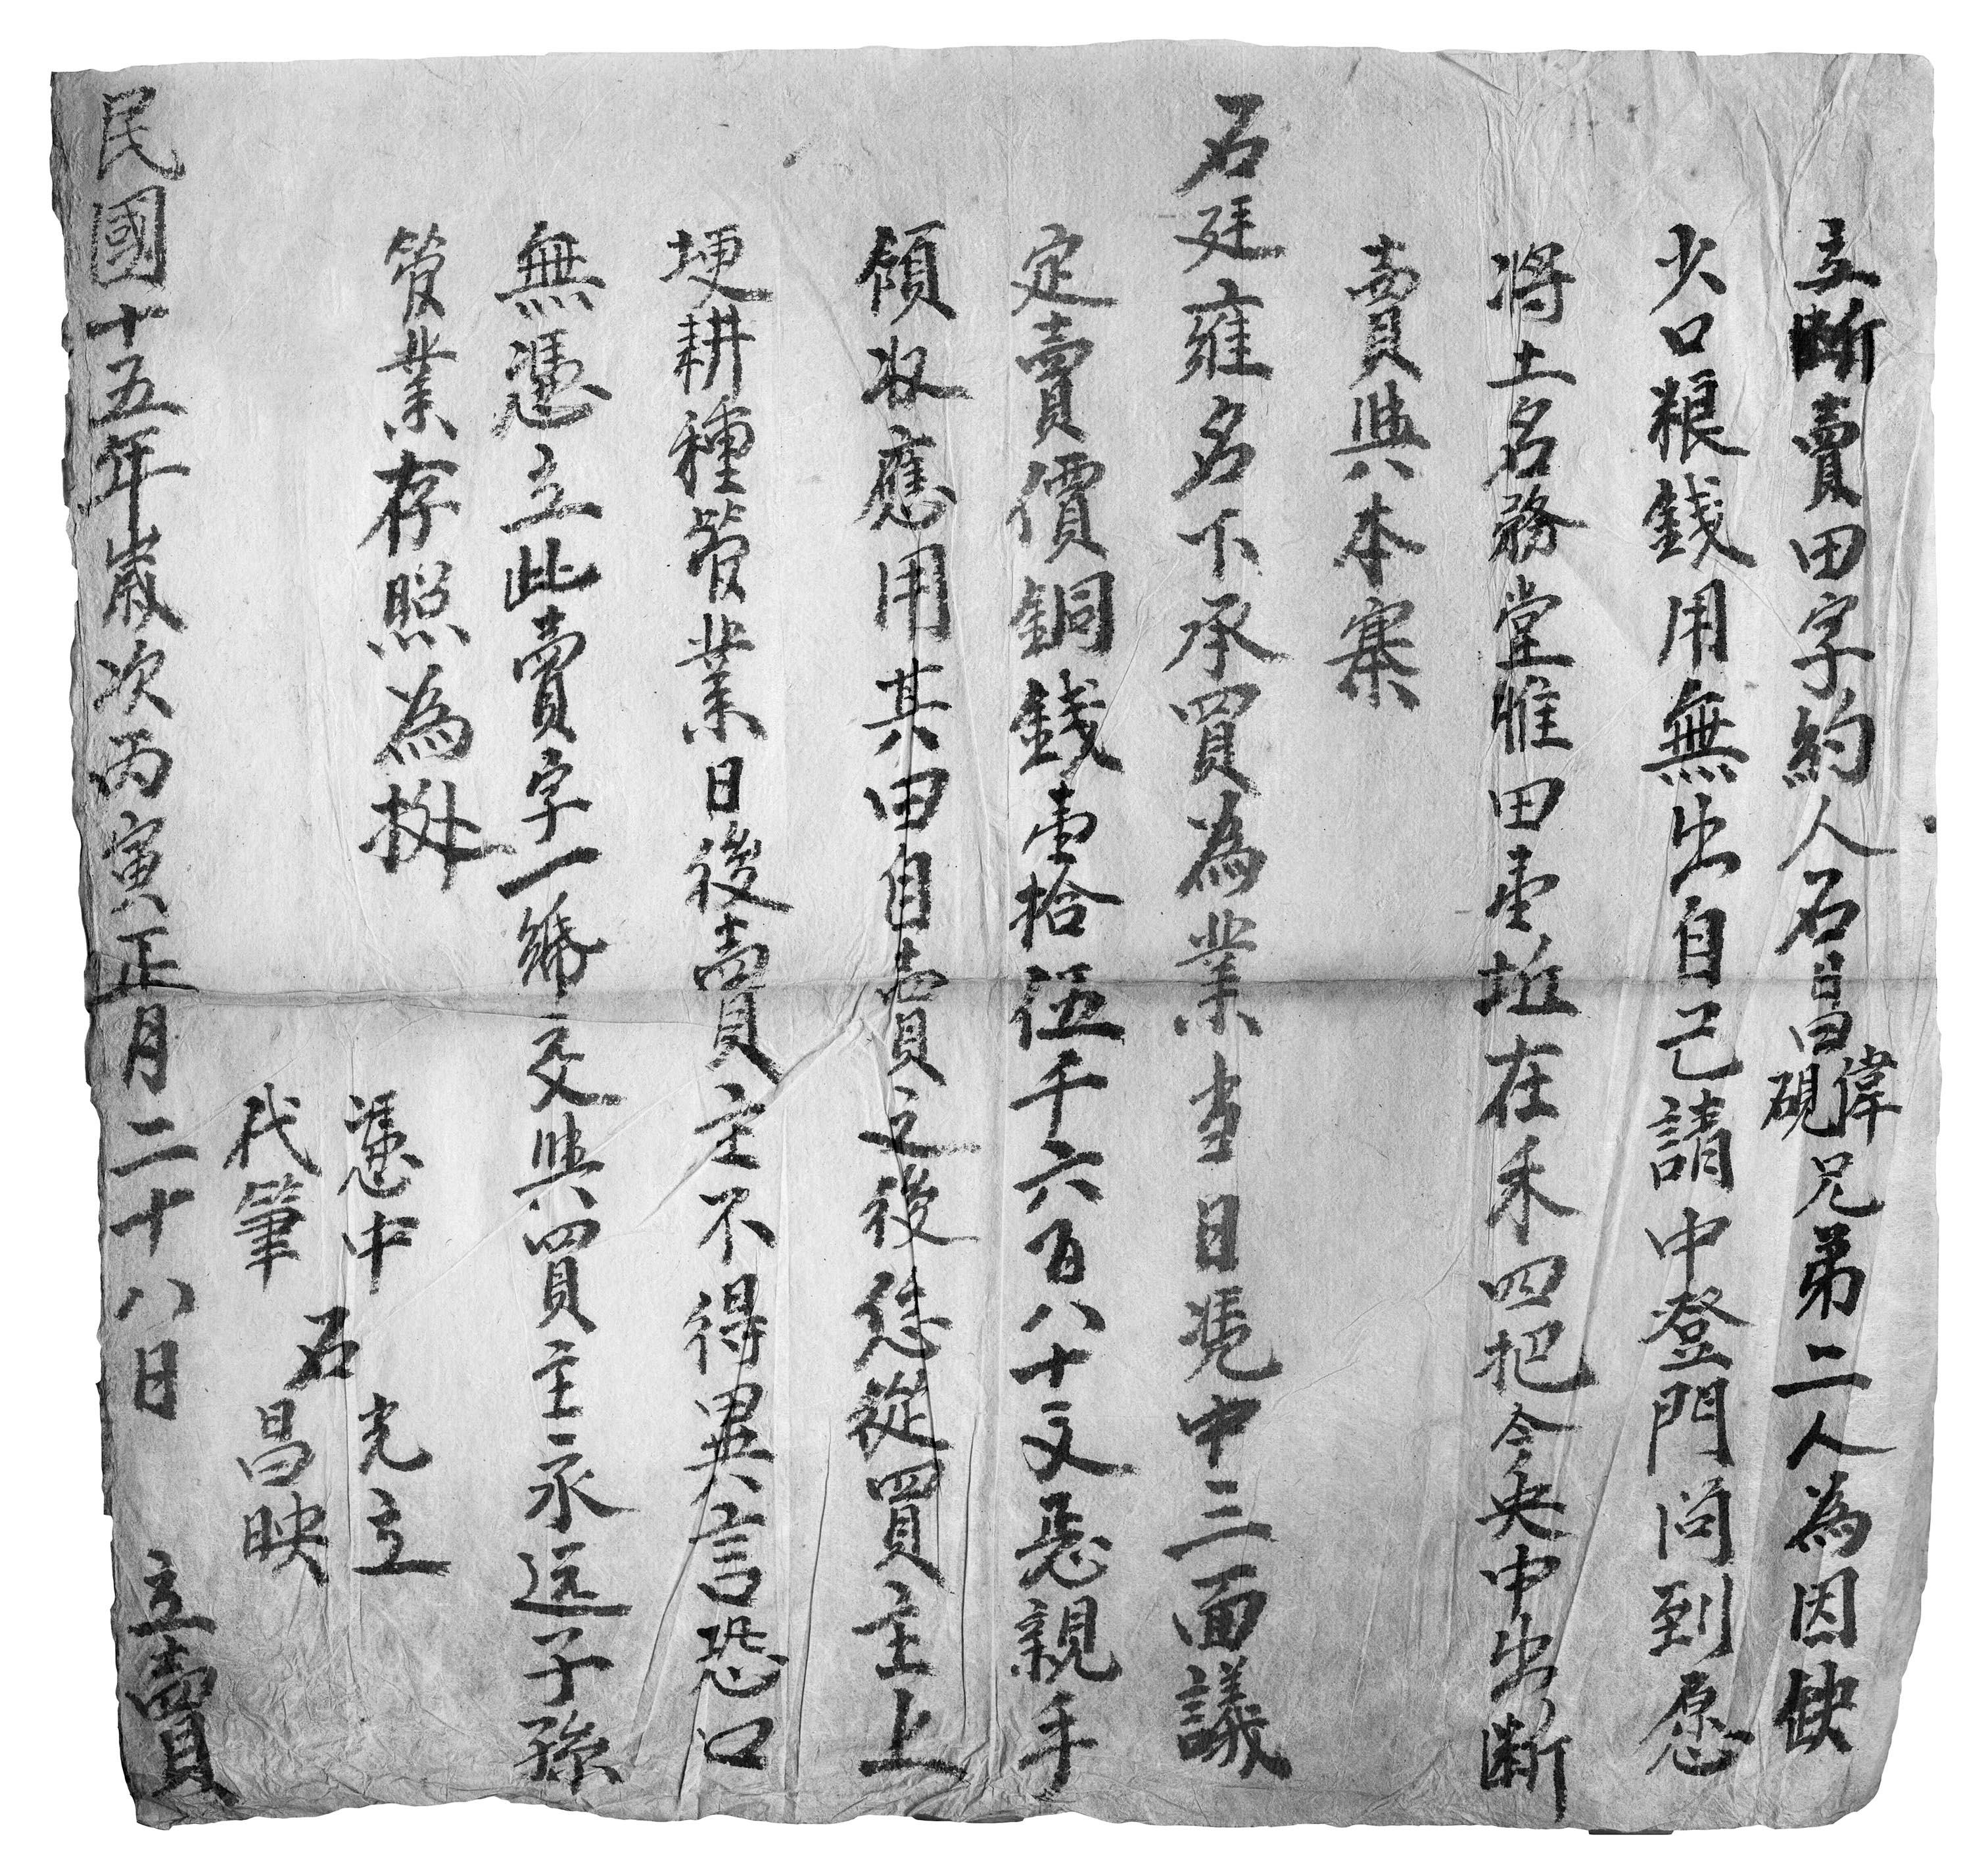 立斷賣田字約人石昌偉硯兄弟二人為因缺
少口粮錢用無出自己請中登門问到愿
将土名務堂惟田壹坵在禾四把今央中出斷
賣與本寨
石廷雍名下承買為業当日凭中三面議
定賣價銅錢壹拾伍千六百八十文悬親手
領收應用其田自賣之後恁從買主上
埂耕種管業日後賣主不得異言恐口
無憑立此賣字一紙交與買主永远子孫
管業存照為據
憑中 石 光立
代筆 昌映
民國十五年歲次丙寅正月二十八日 立賣